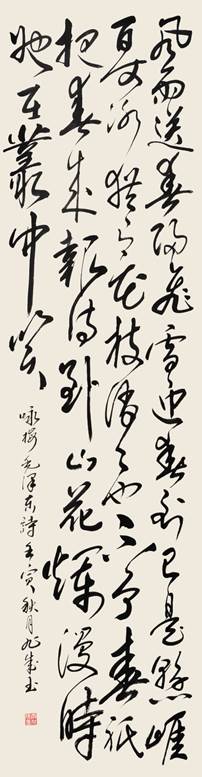 風雨送春歸飛雪迎春到已是懸崖
百丈冰猶有花枝俏〻也不争春祇
把春來報待到山花爛漫時
她在叢中笑
咏梅毛澤東詩壬寅秋月旭成书